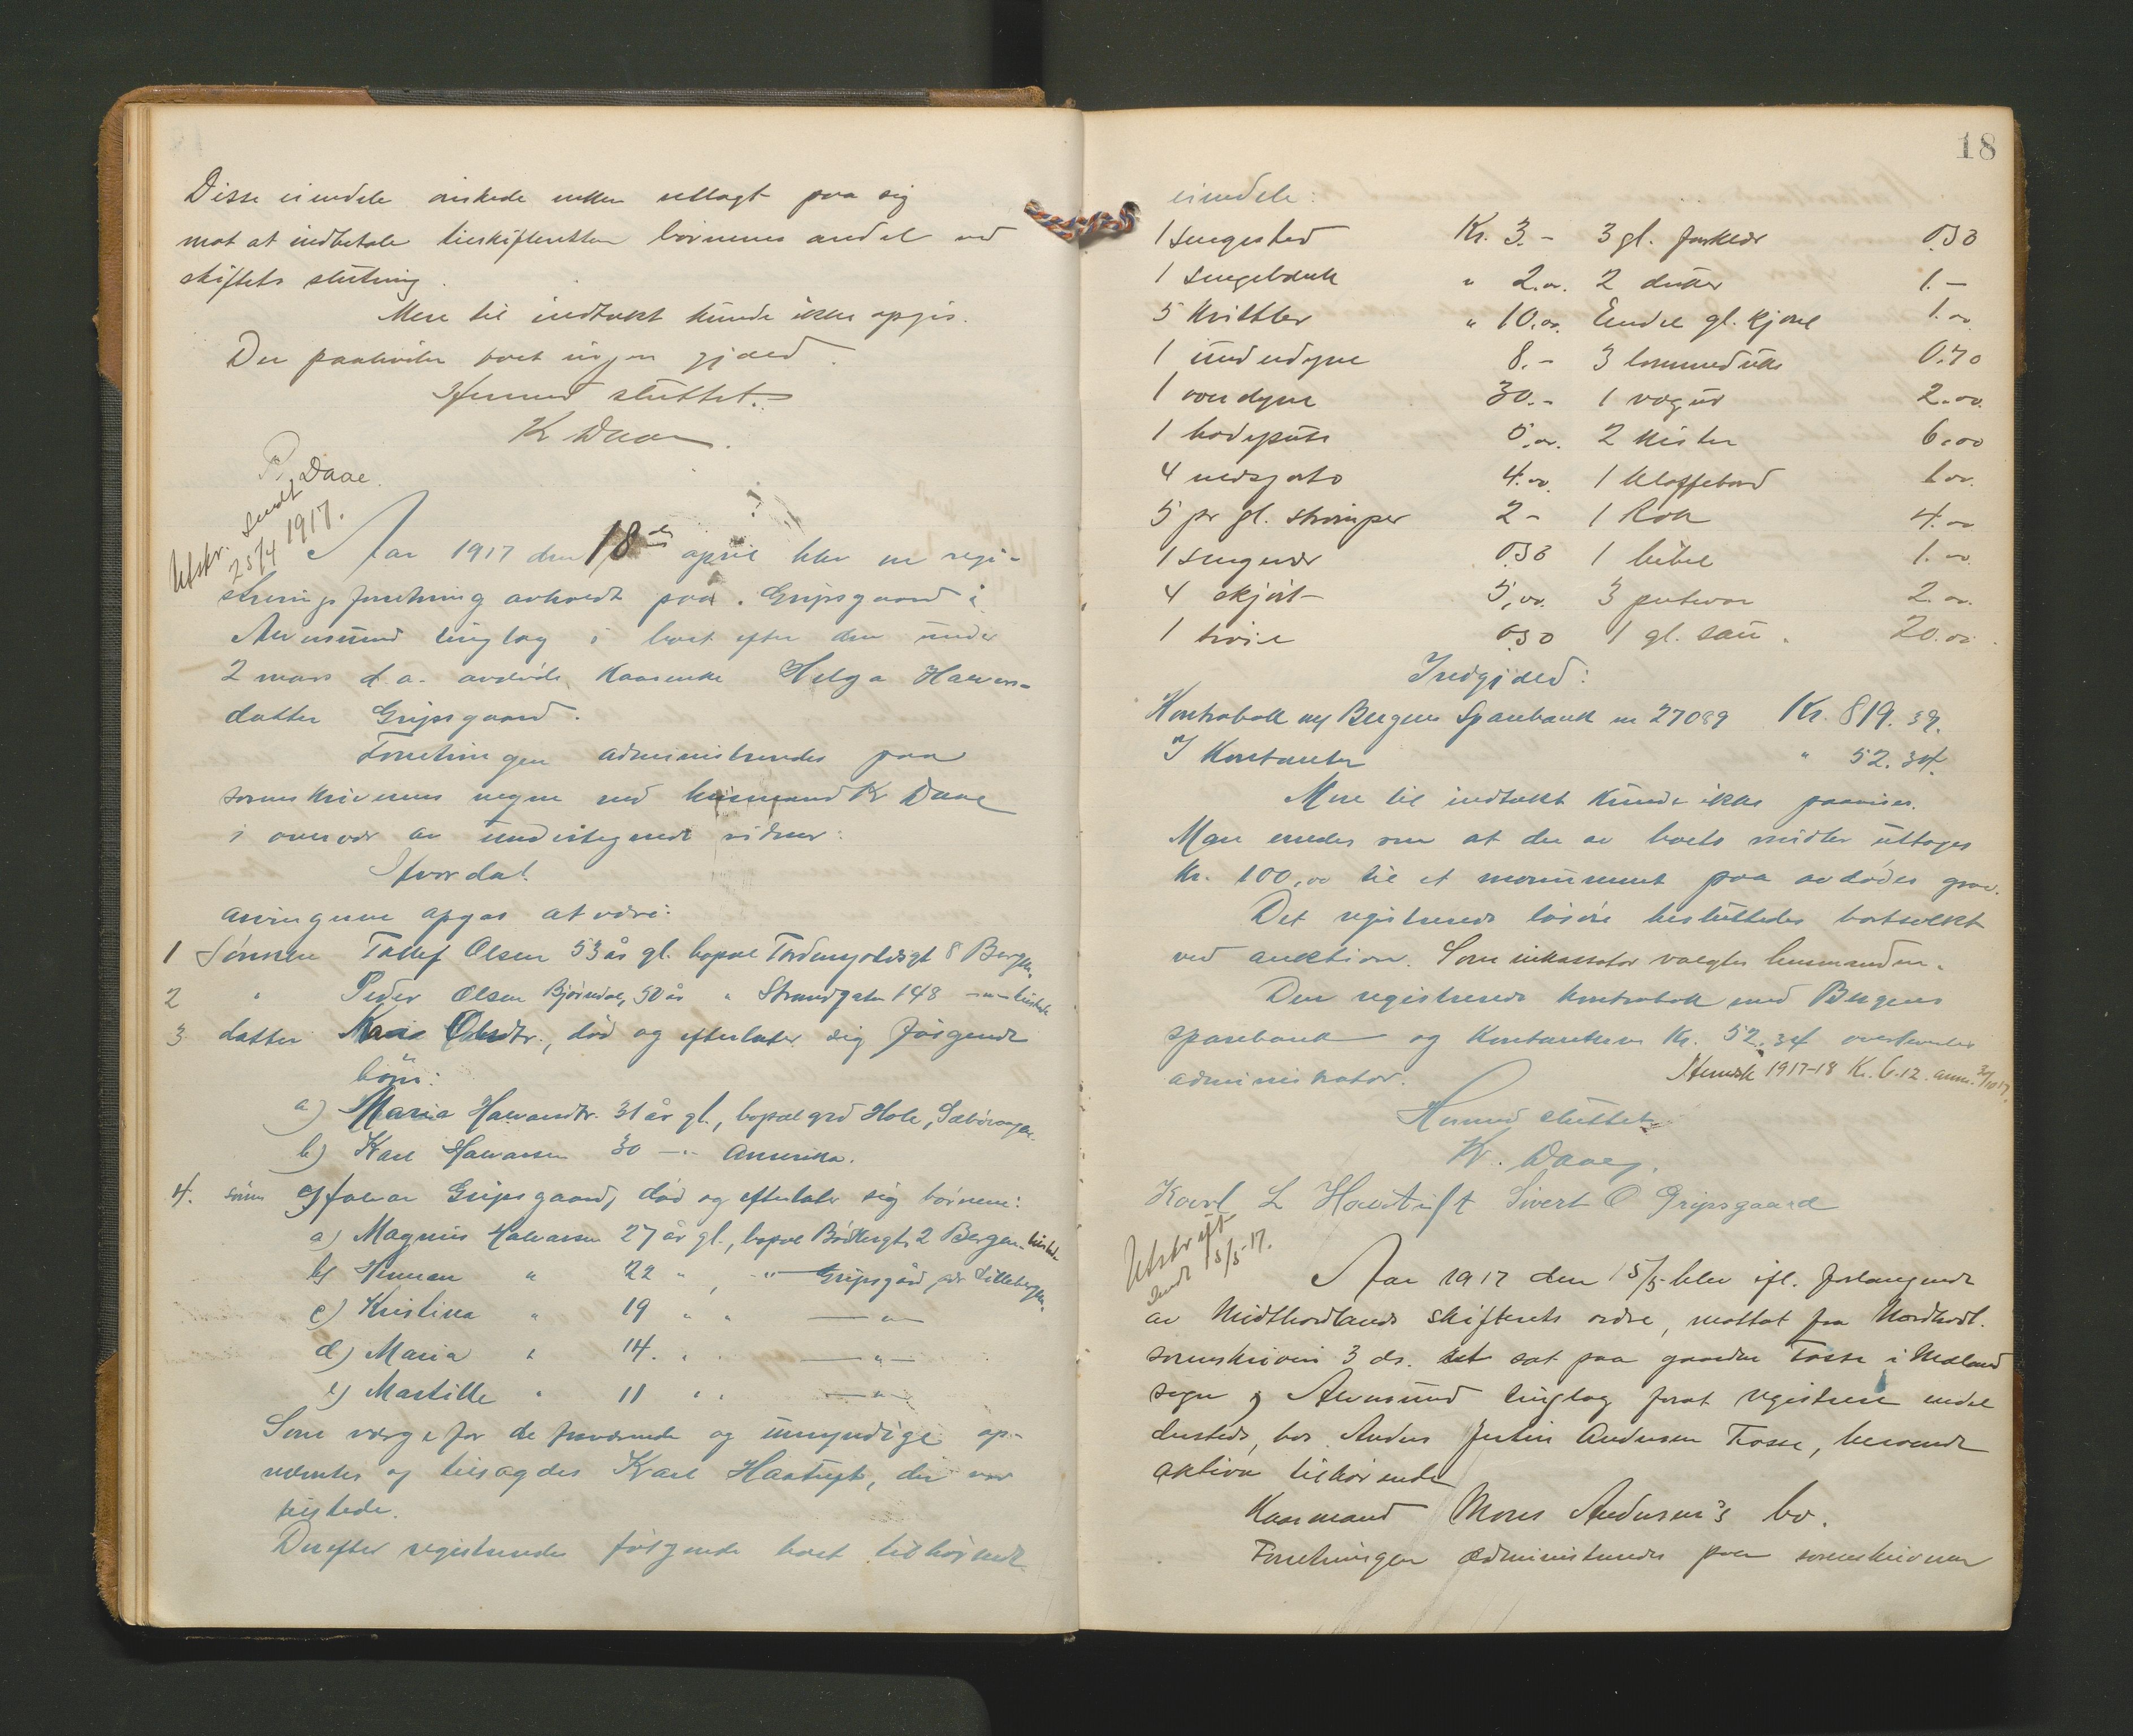 Disse eiendele ønskede enken utlagt paa sig
mot at indbetale til skifteretten børnenes andel ved
skiftets slutning.
Mere til indtækt kunde ikke opgis.
Der paahviler boet ingen gjæld.
Hermed sluttet.
K Daae.
P. Daae.
Utskr. sendt
25/4 1917.
Aar 1917 den 18de april blev en regi-
streringsforretning avholdt paa Gripsgaard i
Alversund tinglag i boet efter den under
2 mars d.a. avdøde kaarenke Helga Halvors-
datter Gripsgaard.
Forretningen administreredes paa
sorenskriverens vegne ved lensmand Kr Daae
i overvær av undertegnede vidner:
Hvorda!
Arvingerne opgas at være:
1 Sønnen Tollef Olsen 53 år gl. bopæl Tordenskjoldsgt 8 Bergen.
2 " Peder Olsen Bjørndal, 50 år " Strandgaten 148 —"— tilstede
3 datter Kari Olsdtr., død og efterlater sig følgende
børn:
a) Maria Halvorsdtr. 31 år gl., bopæl grd Hole, Sæbøvaagen.
b) Karl Halvorsen 30 —"— Amerika.
4. sønn Halvor Gripsgaard, død og efterlater sig børnene:
a) Magnus Halvorsen 27 år gl., bopæl Bødkergt. 2 Bergen. tilstede
b) Herman " 22 " , —"— Gripsgård pr Lillebergen.
c) Kristina " 19 " " —"—
d) Maria " 14. " " —"—
e) Martille " 11 " " —"—
Som værge for de fraværende og umyndige op-
nævntes og tilsagdes Karl Haatuft, der var
tilstede.
Derefter registreredes følgende boet tilhørende
18
eiendele:
1 sengested Kr. 3.- 3 gl. forklær 0.50
1 sengebænk " 2.00. 2 duker 1.-
5 Kvittler " 10.00. Endel gl. kjorel 1.00
1 underdyne 8.- 3 lommeduke 0.70
1 overdyne 30.- 1 vægur 2.00.
1 hodepute 5.00. 2 kister 6.00
4 nedsjorto 4.00. 1 klaffebord 1.00.
5 pr gl. strømper 2- 1 Rok 4.00
1 sengevær 0.50 1 bibel 1.00.
4 skjørt- 5,00. 3 putevar 2.00.
1 trøie 0.50 1 gl. sau. 20.00.
Indgjæld:
Kontrabok m/ Bergens Sparebank nr 27089 Kr. 819.39.
I Kontanter " 52.34.
Mere til indtækt kunde ikke paavises.
Man enedes om at der av boets midler uttages
Kr. 100,00 til et monument paa avdødes grav.
Det registrerede løsøre besluttedes bortsolgt
ved auktion. Som inkassator valgtes lensmanden.
Den registrerede kontrabok med Bergens
sparebank og kontanterne Kr. 52.34 overleveredes
administrator.
Hermed sluttet.
Kr. Daae.
Karl L Haatuft Sivert O Gripsgaard
Utskrift
sendt 15/5-17.
Aar 1917 den 15/5 blev ifl. forlangende
av Midthordlands skifterets ordre, mottat fra Nordhordl.
sorenskriveri 3 ds. ret sat paa gaarden Fosse i Meland
sogn og Alversund tinglag forat registrere endel
dersteds, hos Anders Justin Andersen Fosse, beroende
aktiva tilhørende
Kaarmand Mons Andersen's bo.
Forretningen administreredes paa sorenskriveren